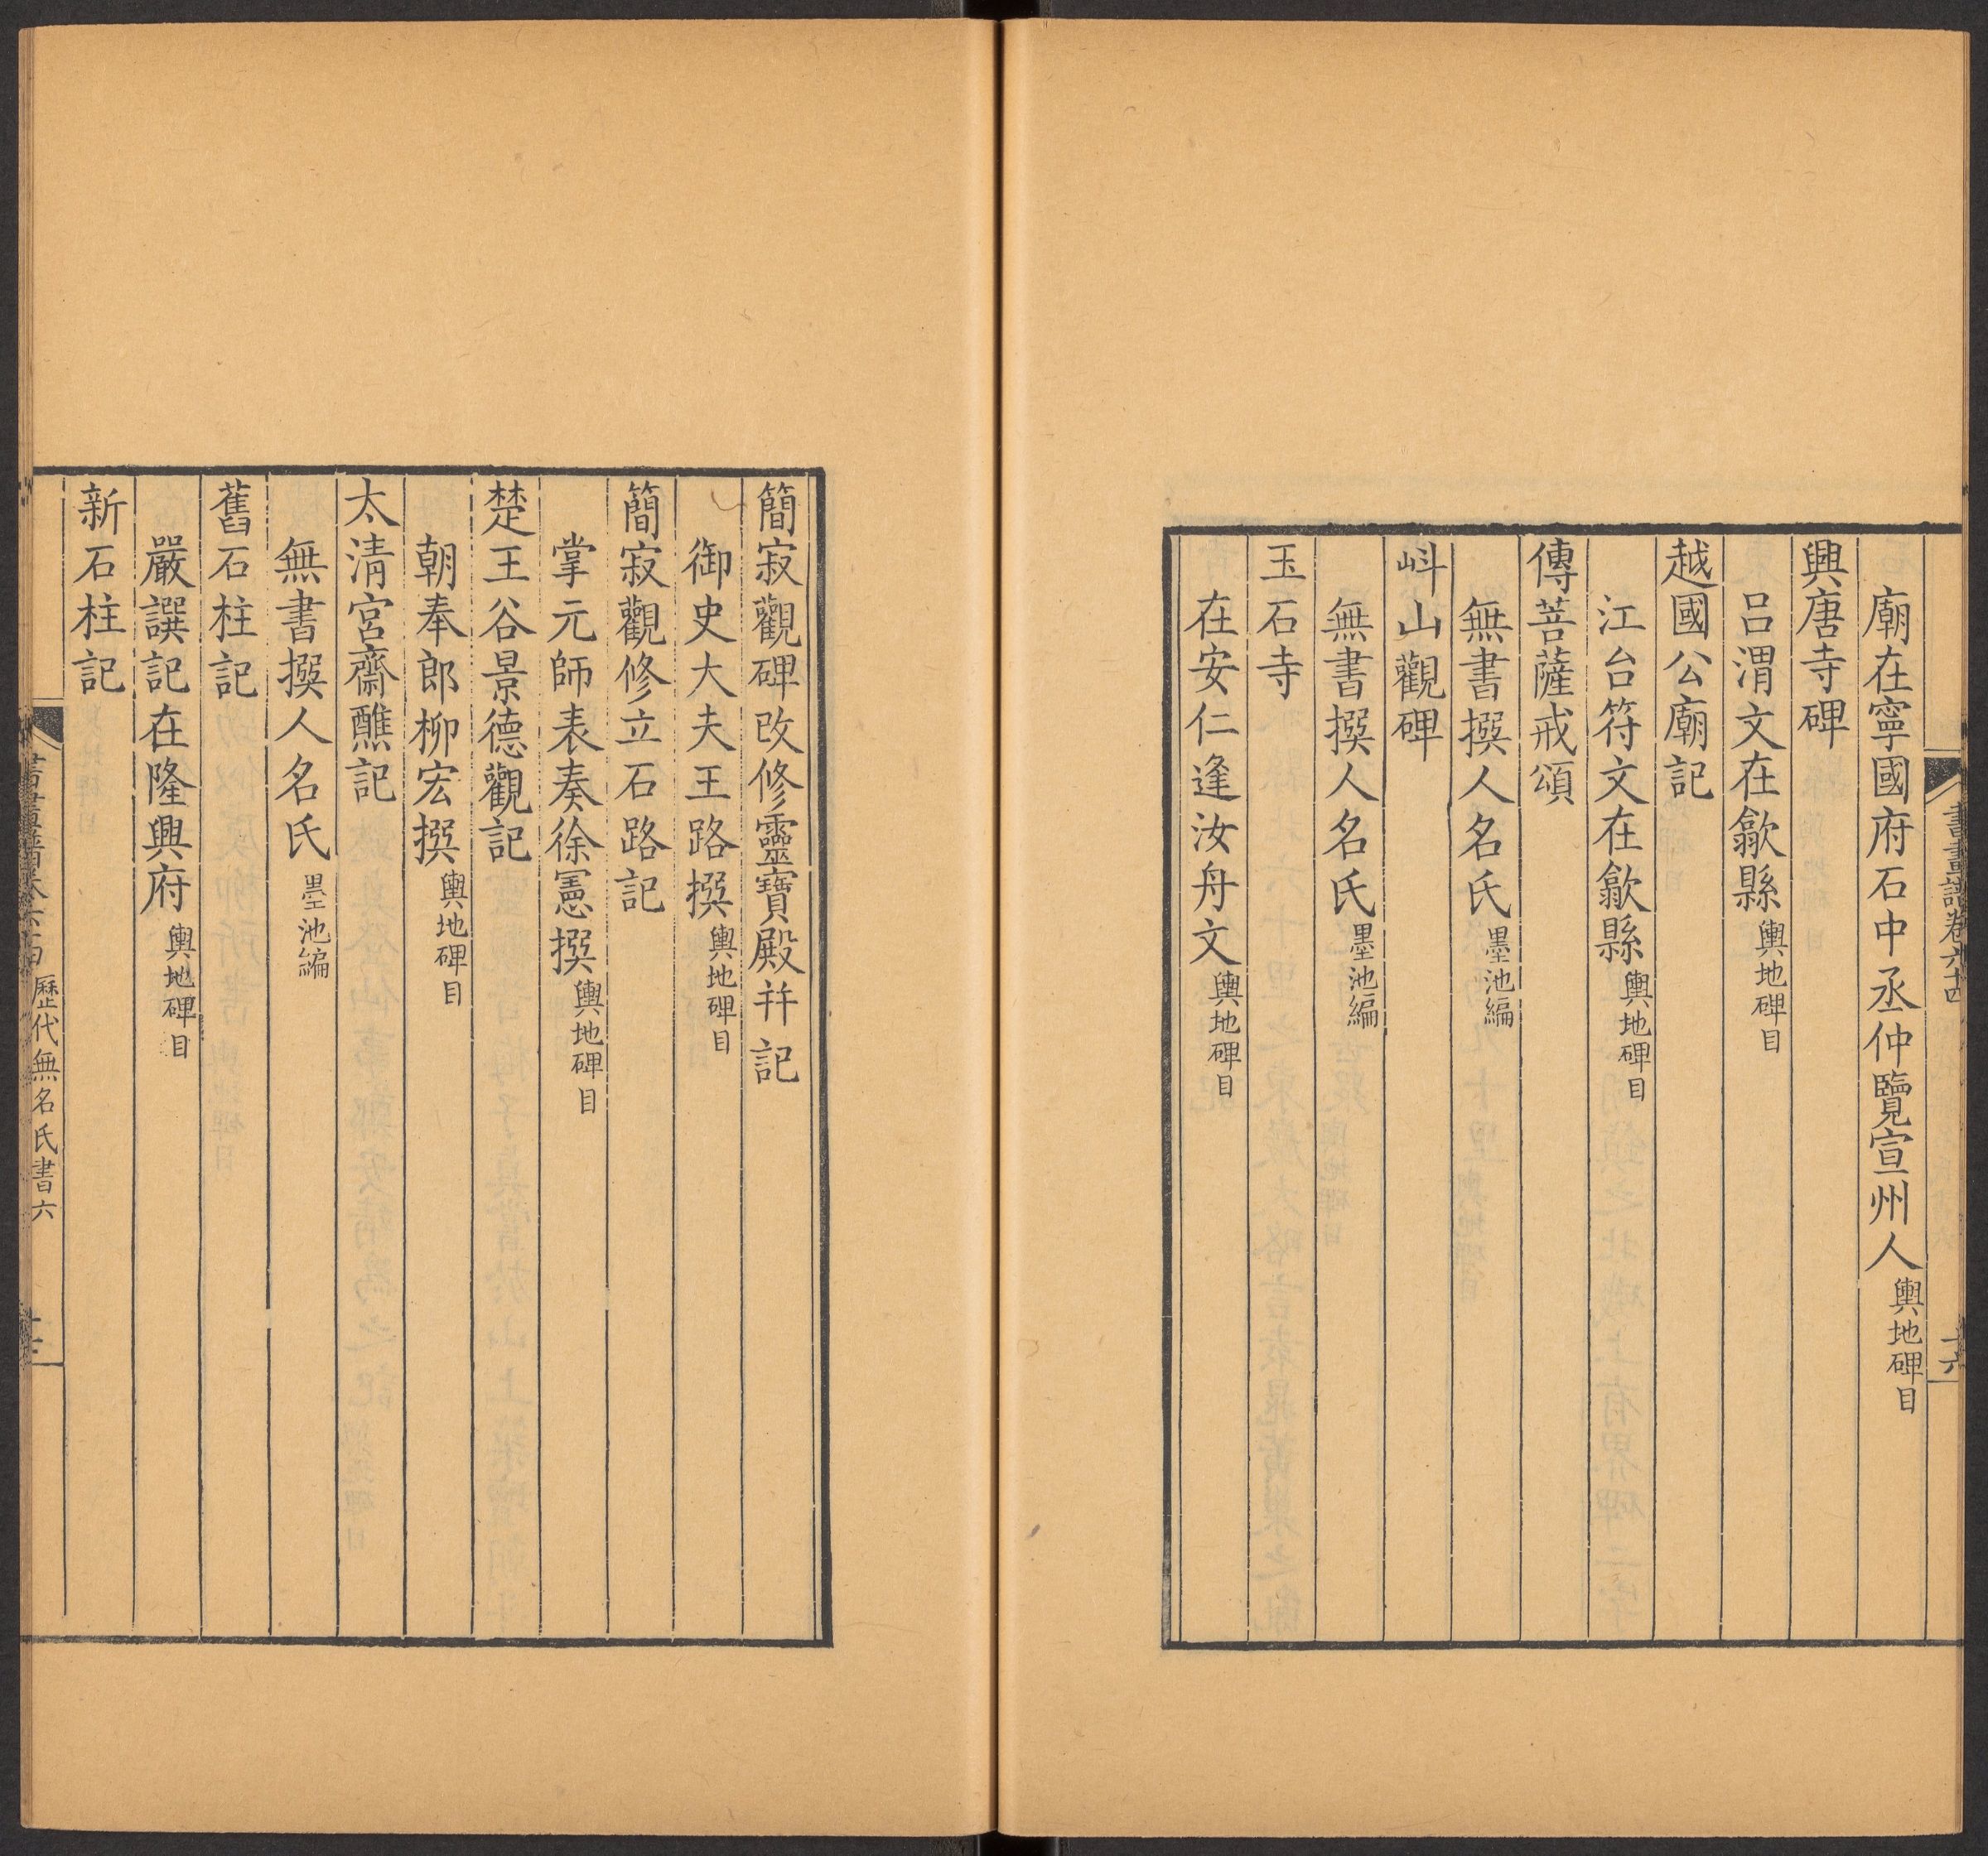 書畫譜卷六十四
十六
廟在寧國府石中丞仲覽宣州人輿地碑目
興唐寺碑
吕渭文在歙縣輿地碑目
越國公廟記
江台符文在歙縣輿地碑目
傳菩薩戒頌
無書撰人名氏墨池編
㟁山觀碑
無書撰人名氏墨池編
玉石寺
在安仁逢汝舟文輿地碑目
簡寂觀碑改修靈寶殿幷記
御史大夫王路撰輿地碑目
簡寂觀修立石路記
掌元師表奏徐憲撰輿地碑目
楚王谷景德觀記
朝奉郎柳宏撰輿地碑目
太清宮齋醮記
無書撰人名氏墨池編
舊石柱記
嚴譔記在隆興府輿地碑目
新石柱記
書畫譜卷六十四 歷代無名氏書六